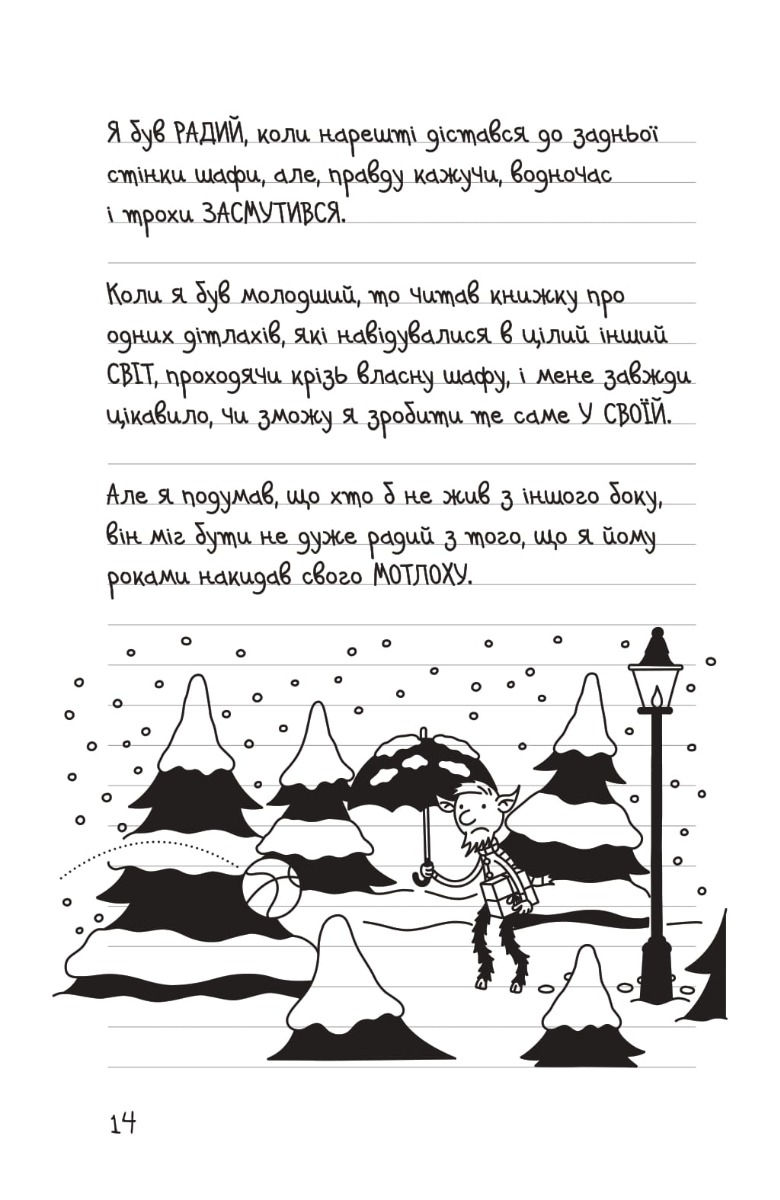 Я був РАДИЙ, коли нарешті дістався до задньої
стінки шафи, але, правду кажучи, водночас
і трохи ЗАСМУТИВСЯ.
Коли я був молодший, то читав книжку про
одних дітлахів, які навідувалися в цілий інший
СВІТ, проходячи крізь власну шафу, і мене завжди
цікавило, чи зможу я зробити те саме У СВОЇЙ.
Але я подумав, що хто б не жив з іншого боку,
він міг бути не дуже радий з того, що я йому
роками накидав свого МОТЛОХУ.
14